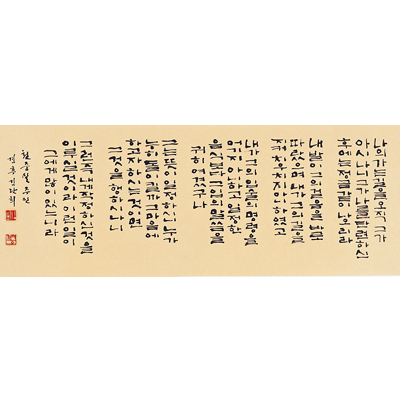 나의 가는 길을 오직 그가
아시나니 그가 나를 단련하신
후에는 정금 같이 나오리라
내 발이 그의 걸음을 바로
따랐으며 내가 그의 길을
치우치지 아니하였고
내가 그의 입술의 명령을
어기지 아니하고 일정한
음식보다 그 입의 말씀을
귀히 여겼구나
그는 뜻이 일정하시니 누가
능히 돌이킬까 그 마음에
하고자 하시는 것이면
그것을 행하시나니
그런즉 내게 작정하신 것을
이루실 것이라 이런 일이
그에게 많이 있느니라
주인